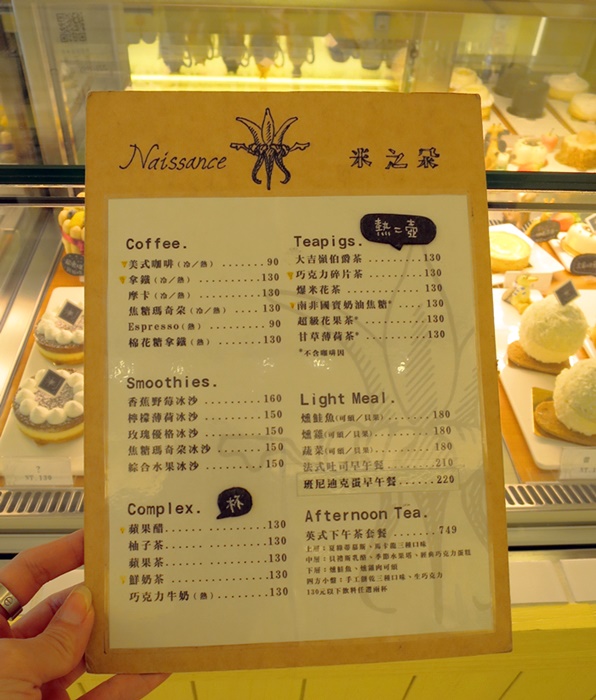 Naissance
米之朵
Coffee.
美式咖啡(冷／熱) ....... 90
拿鐵(冷／熱) .......... 130
摩卡(冷／熱) .......... 130
焦糖瑪奇朵(冷／熱) .... 130
Espresso(熱) .......... 90
棉花糖拿鐵(熱) ........ 130
Smoothies.
香蕉野莓冰沙 .......... 160
檸檬薄荷冰沙 .......... 150
玫瑰優格冰沙 .......... 150
焦糖瑪奇朵冰沙 ........ 150
綜合水果冰沙 .......... 150
Complex.
杯
蘋果醋 ................ 130
柚子茶 ................ 130
蘋果茶 ................ 130
鮮奶茶 ................ 130
巧克力牛奶(熱) ........ 130
Teapigs.
熱二壺
大吉嶺伯爵茶 .......... 130
巧克力碎片茶 .......... 130
爆米花茶 .............. 130
南非國寶奶油焦糖* .... 130
超級花果茶* .......... 130
甘草薄荷茶* .......... 130
*不含咖啡因
Light Meal.
燻鮭魚(可頌／貝果) ...... 180
燻雞(可頌／貝果) ........ 180
蔬菜(可頌／貝果) ........ 180
法式吐司早午餐 ........ 210
班尼迪克蛋早午餐 ...... 220
Afternoon Tea.
英式下午茶套餐 ....... 749
下層：燻鮭魚、燻雞肉可頌
四方小盤：手工餅乾三種口味、生巧克力
130元以下飲料任選兩杯